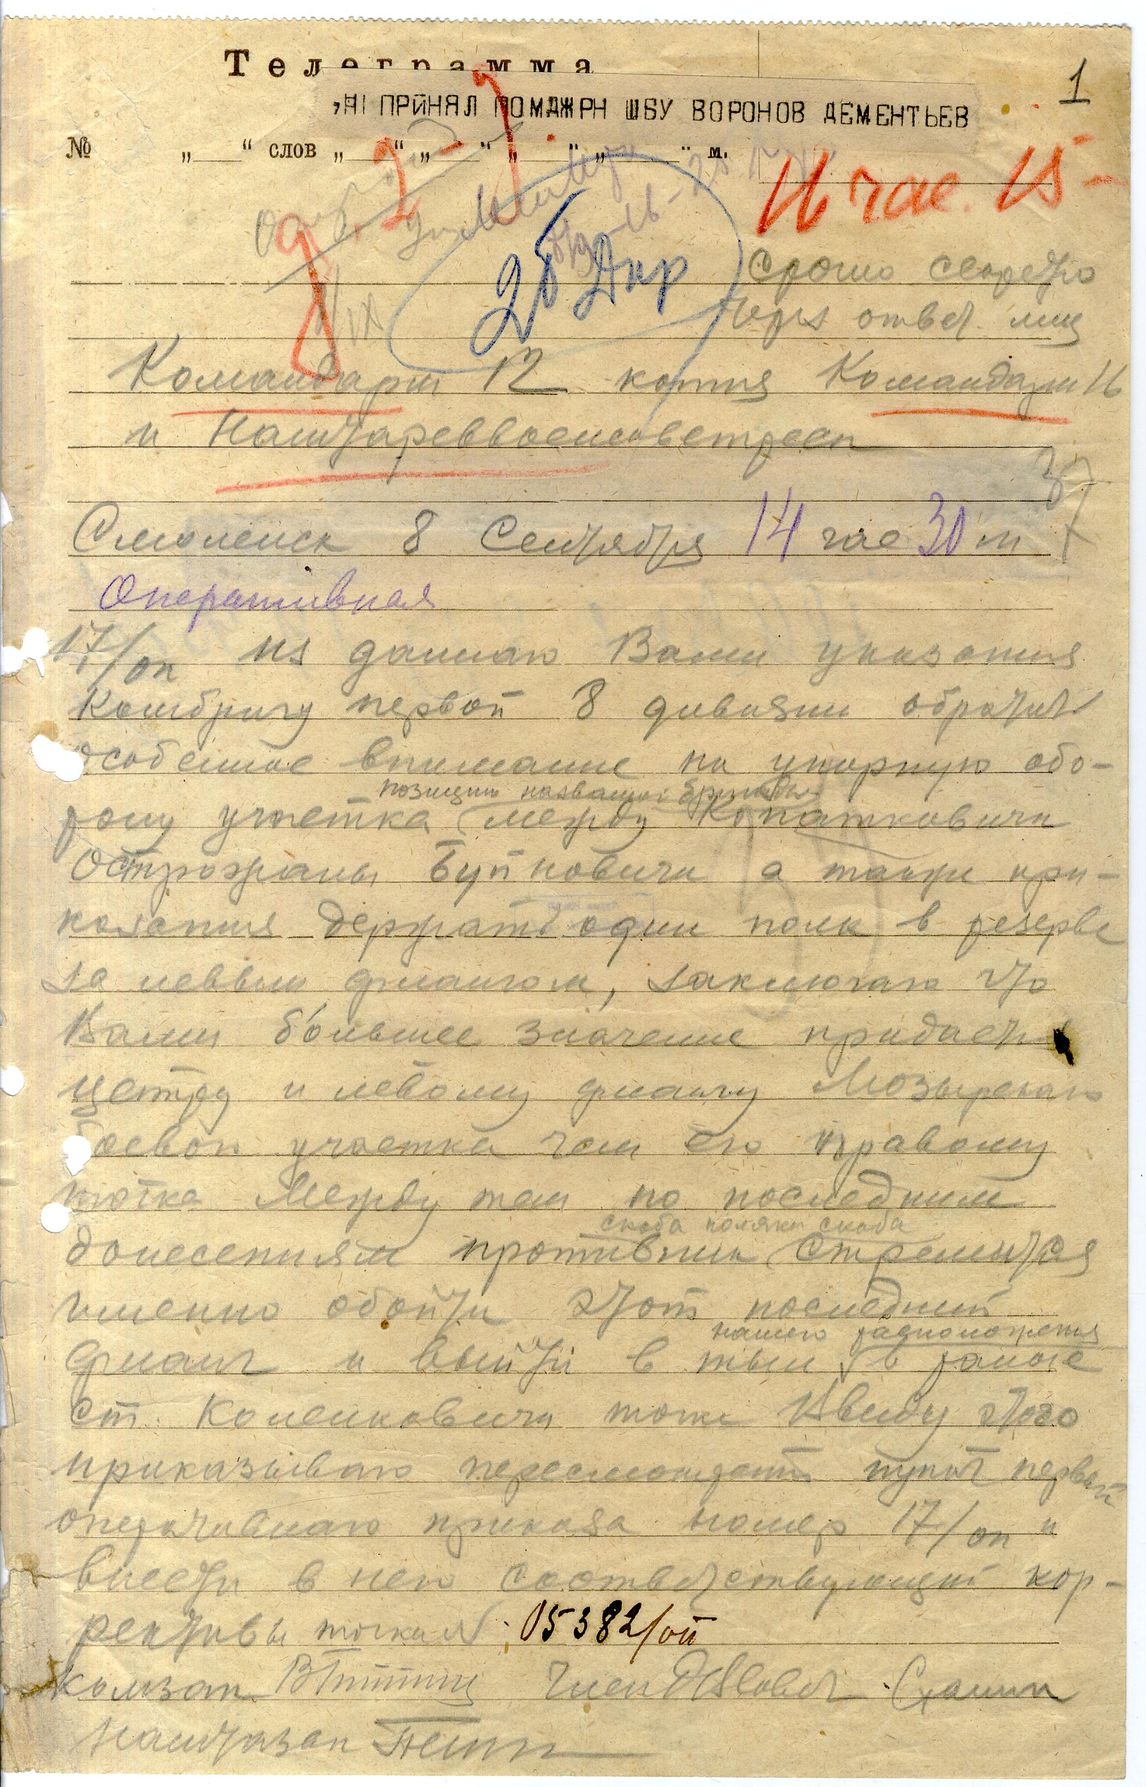 Телеграмма
1
НІ ПРИНЯЛ ПОМДЖРН ШБУ ВОРОНОВ ДЕМЕНТЬЕВ
№ „ “ слов „ “ „ “ „ “ „ “ м.
16 час. 15
срочно секретно
через ответ. лиц
Командарм 12 копия Командарм 16
и Наштареввоенсоветресп
37
Смоленск 8 Сентября 14 час 30 м
Оперативная
17/оп из данного Вами указания
Комбригу первой 8 дивизии обратить
особенное внимание на упорную обо-
позиции названной бригады
рону участка между Копаткевичи
Острожаны Буйновичи а также при-
казания держать один полк в резерве
за левым флангом, заключаю что
Вами большее значение придается
центру и левому флангу Мозырского
боевого участка чем его правому
точка Между тем по последним
скоба поляки скоба
донесениям противник стремится
именно обойти этот последний
нашего расположения
фланг и выйти в тыл в районе
ст. Коленковичи точка Ввиду этого
приказываю пересмотреть пункт первый
оперативного приказа номер 17/оп и
внести в него соответствующий кор-
рективы точка № 05382/оп
Комзап ВГиттис Член РВСовет Сталин
Наштазап Петин